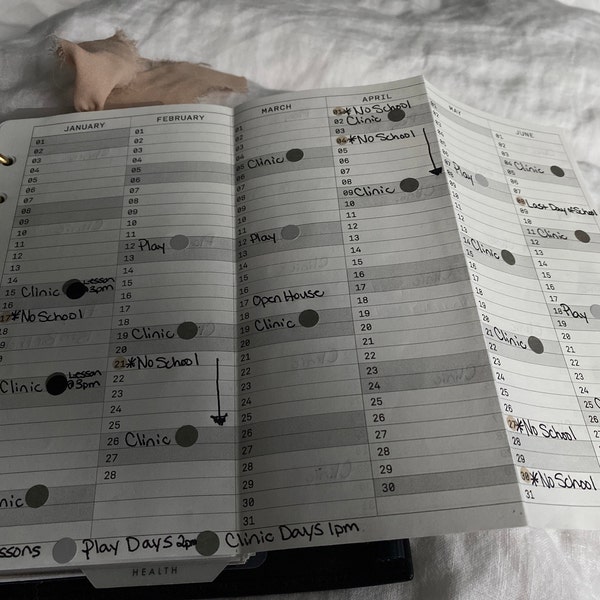 JANUARY
01
02
03
04
05
06
07
08
09
10
11
12
13
14
15 Clinic Lesson @3pm
16
17 *No School
18
Clinic Lesson @3pm
nic
FEBRUARY
01
02
03
04
05
06
07
08
09
10
11
12 Play
13
14
15
16
17
18
19 Clinic
20
21 *No School
22
23
24
25
26 Clinic
27
28
MARCH
01
02
03
04
05 Clinic
06
07
08
09
10
11
12 Play
13
14
15
16
17 Open House
18
19 Clinic
20
21
22
23
24
25
26
27
28
29
30
31
APRIL
01 *No School
02 Clinic
03
04 *No School
05
06
07
08
09 Clinic
10
11
12
13
14
15
16
17
18
19
20
21
22
23
24
25
26
27
28
29
30
MAY
01
02
03
04
05
06
07 Play
08
09
10
11
12
13
14 Clinic
15
16
17
18
19
20
21 Clinic
22
23
24
25
26
27 *No School
28
29
30 *No School
31
JUNE
01
02
03
04 Clinic
05
06
07
08 Last Day of School
09
10
11 Clinic
12
13
14
15
16
17
18 Play
19
20
21
22
23
24
25
26
27
ssons Play Days 2pm Clinic Days 1pm
HEALTH